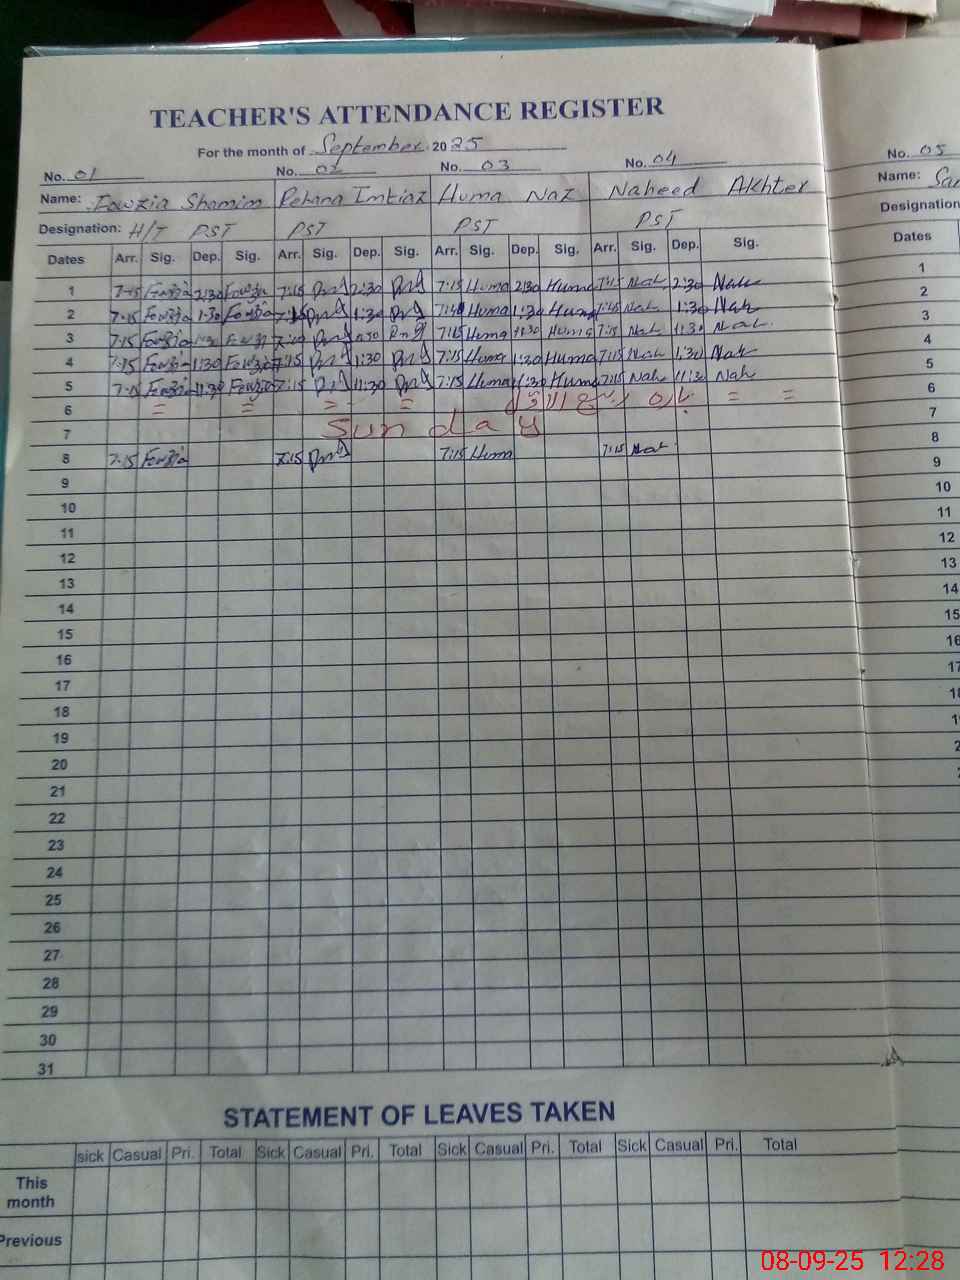 TEACHER'S ATTENDANCE REGISTER
For the month of September 2025
No. 01 No. 02 No. 03 No. 04 No. 05
Name: Fowzia Shamim Rehana Imtiaz Huma Naz Naheed Akhter Name: San
Designation: H/T PST PST PST PST Designation
Dates Arr. Sig. Dep. Sig. Arr. Sig. Dep. Sig. Arr. Sig. Dep. Sig. Arr. Sig. Dep. Sig. Dates
1 7-15 Fowzia 2:30 Fowzia 7:15 2:30 7:15 Huma 2:30 Huma Nah 2:30 Nah 1
2 7-15 Fowzia 1-30 Fowzia 1:30 Huma 1:30 Huma Nah 1:30 Nah 2
3 7-15 Fowzia Fowzia 7:15 Huma Huma 7:15 Nah 11:30 Nah 3
4 7-15 Fowzia 1:30 Fowzia 7:15 1:30 7:15 Huma 1:30 Huma 7:15 Nah 1:30 Nah 4
5 7-15 Fowzia 11:30 Fowzia 7:15 11:30 7:15 Huma 11:30 Huma 7:15 Nah 11:30 Nah 5
6 = = = = = = 6
7 Sunday 7
8 7-15 Fowzia 7:15 7:15 Huma 7:15 Nah 8
9 9
10 10
11 11
12 12
13 13
14 14
15 15
16 16
17 17
18
19
20
21
22
23
24
25
26
27
28
29
30
31
STATEMENT OF LEAVES TAKEN
sick Casual Pri. Total Sick Casual Pri. Total Sick Casual Pri. Total Sick Casual Pri. Total
This
month
Previous
08-09-25 12:28